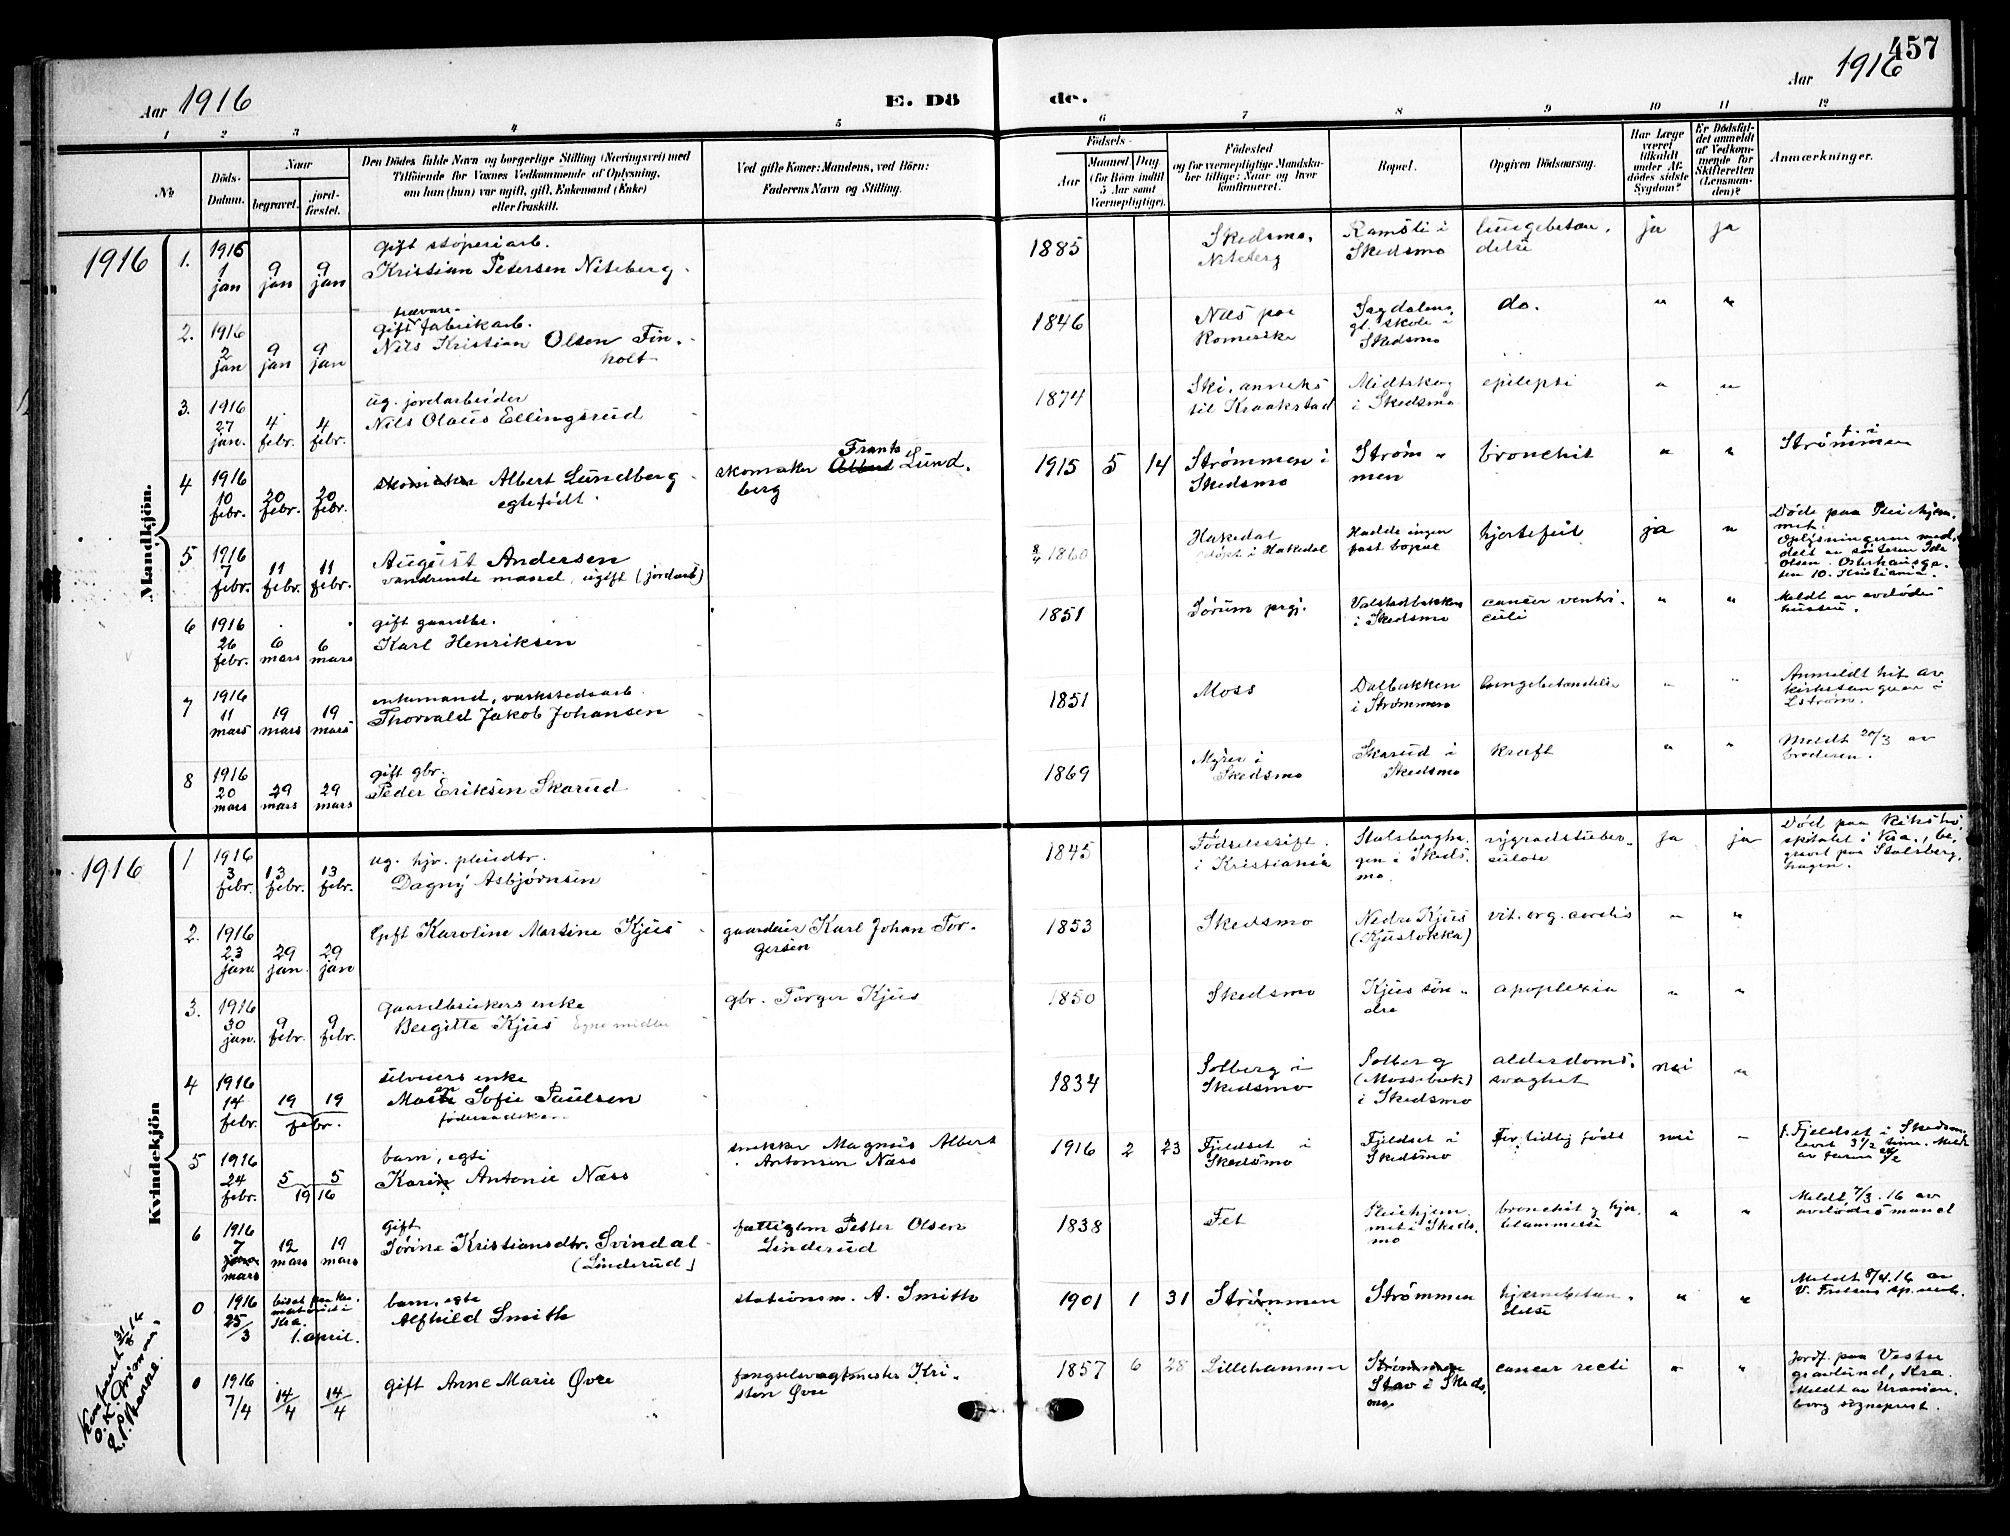 457
Aar 1916
E. Dö de.
Aar 1916
1 2 3 4 5 6 7 8 9 10 11 12
No
Döds-Datum.
Naar
begravet.
jord-fæstet.
Den Dödes fulde Navn og borgerlige Stilling (Næringsvei) med
Tilföiende for Voxnes Vedkommende af Oplysning,
om han (hun) var ugift, gift, Enkemand (Enke)
eller fraskilt.
Ved gifte Koner: Mandens, ved Börn:
Faderens Navn og Stilling.
Födsels-
Aar
Maaned (for Börn indtil 5 Aar samt Værnepligtige).
Dag
Födested
og for værnepligtige Mandska-
ber tillige: Naar og hvor
konfirmeret.
Bopæl.
Opgiven Dödsaarsag.
Har Læge været tilkaldt under Af-dödes sidste Sygdom?
Er Dödsfal-det anmeldt af Vedkom-mende for Skifteretten (Lensman-den)?
Anmærkninger.
Mandkjön.
1916
1. 1916 1 jan 9 jan 9 jan gift støperiarb. Kristian Petersen Niteberg 1885 Skedsmo, Niteberg Ramsli i Skedsmo lungebetæn-delse ja ja
2. 1916 2 jan 9 jan 9 jan gift trævare-fabrikarb. Nils Kristian Olsen Fin-holt 1846 Næs paa Romerike Sagdalens gl. skole i Skedsmo do. " "
3. 1916 27 jan. 4 febr. 4 febr. ug. jordarbeider Nils Olaus Ellingsrud 1874 Ski, anneks til Kraakstad Midtskog i Skedsmo epilepsi " "
4 1916 10 febr. 20 febr. 20 febr. skomaker Albert Lundberg egtefødt. skomaker Albert Frants Lund-berg 1915 5 14 Strømmen i Skedsmo Strøm-men bronchit " " f. i Strømmen
5 1916 7 febr. 11 febr. 11 febr. August Andersen vandrende mand, ugift (jordarb) 8/4 1860 Hakedal døbt i Hakedal Hadde ingen fast bopæl hjertefeil ja " Døde paa Pleiehjem-met. Oplysningerne med-delt av søsteren Ida Olsen. Osterhausga-ten 10. Kristiania.
6 1916 26 febr. 6 mars 6 mars gift gaardbr. Karl Henriksen 1851 Sørum prgj. Valstadbakken i Skedsmo cancer ventri-culi " " Meldt av avdødes hustru.
7 1916 11 mars 19 mars 19 mars enkemand, verkstedsarb. Thorvald Jakob Johansen 1851 Moss Dalbakken i Strømmen lungebetændelse " " Anmeldt hit av kirkesanger i Lstrøm.
8 1916 20 mars 29 mars 29 mars gift gbr. Peder Eriksen Skarud 1869 Myrer i Skedsmo Skarud i Skedsmo kræft " " Meldt 20/3 av broderen.
Kvindekjön
1916
1 1916 3 febr. 13 febr. 13 febr. ug. hjv. pleiedtr. Dagny Asbjørnsen 1845 Fødselsstift. i Kristiania Stalsbergha-gen i Skeds-mo. rygradstuber-culose ja ja Død paa Rikshos-pitalet i Kra., be-gravet paa Stalsberg-hagen.
2. 1916 23 jan. 29 jan. 29 jan gift Karoline Martine Kjus gaardeier Karl Johan Tor-gersen 1853 Skedsmo Nedre Kjus (Kjusløkka) vit. org. cordis " "
3. 1916 30 jan. 9 febr. 9 febr. gaardbrukers enke Bergitte Kjus Egne midler gbr. Torger Kjus 1850 Skedsmo Kjus søn-dre apoplexia " "
4 1916 14 febr. 19 19 febr. selveiers enke Maren Sofie Paulsen føderaadskone 1834 Solberg i Skedsmo Solberg (Mossebæk) i Skedsmo alderdoms-svaghet nei "
5 1916 24 febr. 5 5 1916 barn, egte Karin Antonie Næss snekker Magnus Albert Antonsen Næss 1916 2 23 Fjeldset i Skedsmo Fjeldset i Skedsmo For tidlig født nei - f. Fjeldset i Skedsm. levet 3 1/2 time. Meldt av faren
6 1916 7 mars 12 mars 19 mars gift Sørine Kristiansdtr. Svindal (Linderud) fattiglem Petter Olsen Linderud 1838 Fet Pleiehjem-met i Skeds-mo bronchit og hjer-telammelse " " Meldt 7/3.16 av avdødes mand
0 1916 25/3 bisat paa kre-matoriet i Kra. 1. april. barn, egte Alfhild Smith stationsm. A. Smith 1901 1 31 Strømmen Strømmen hjernebetæn-delse " " Meldt 8/4.16 av
0 1916 7/4 14/4 14/4 gift Anne Marie Øvre fængselsvagtmester Kri-stian Øvre 1857 6 28 Lillehammer Strømmen Stav i Skeds-mo. cancer recti " " Jordf. paa Vestre gravlund, Kra. Meldt av Uranien-borg sogneprest.
Konferert 31/8 16